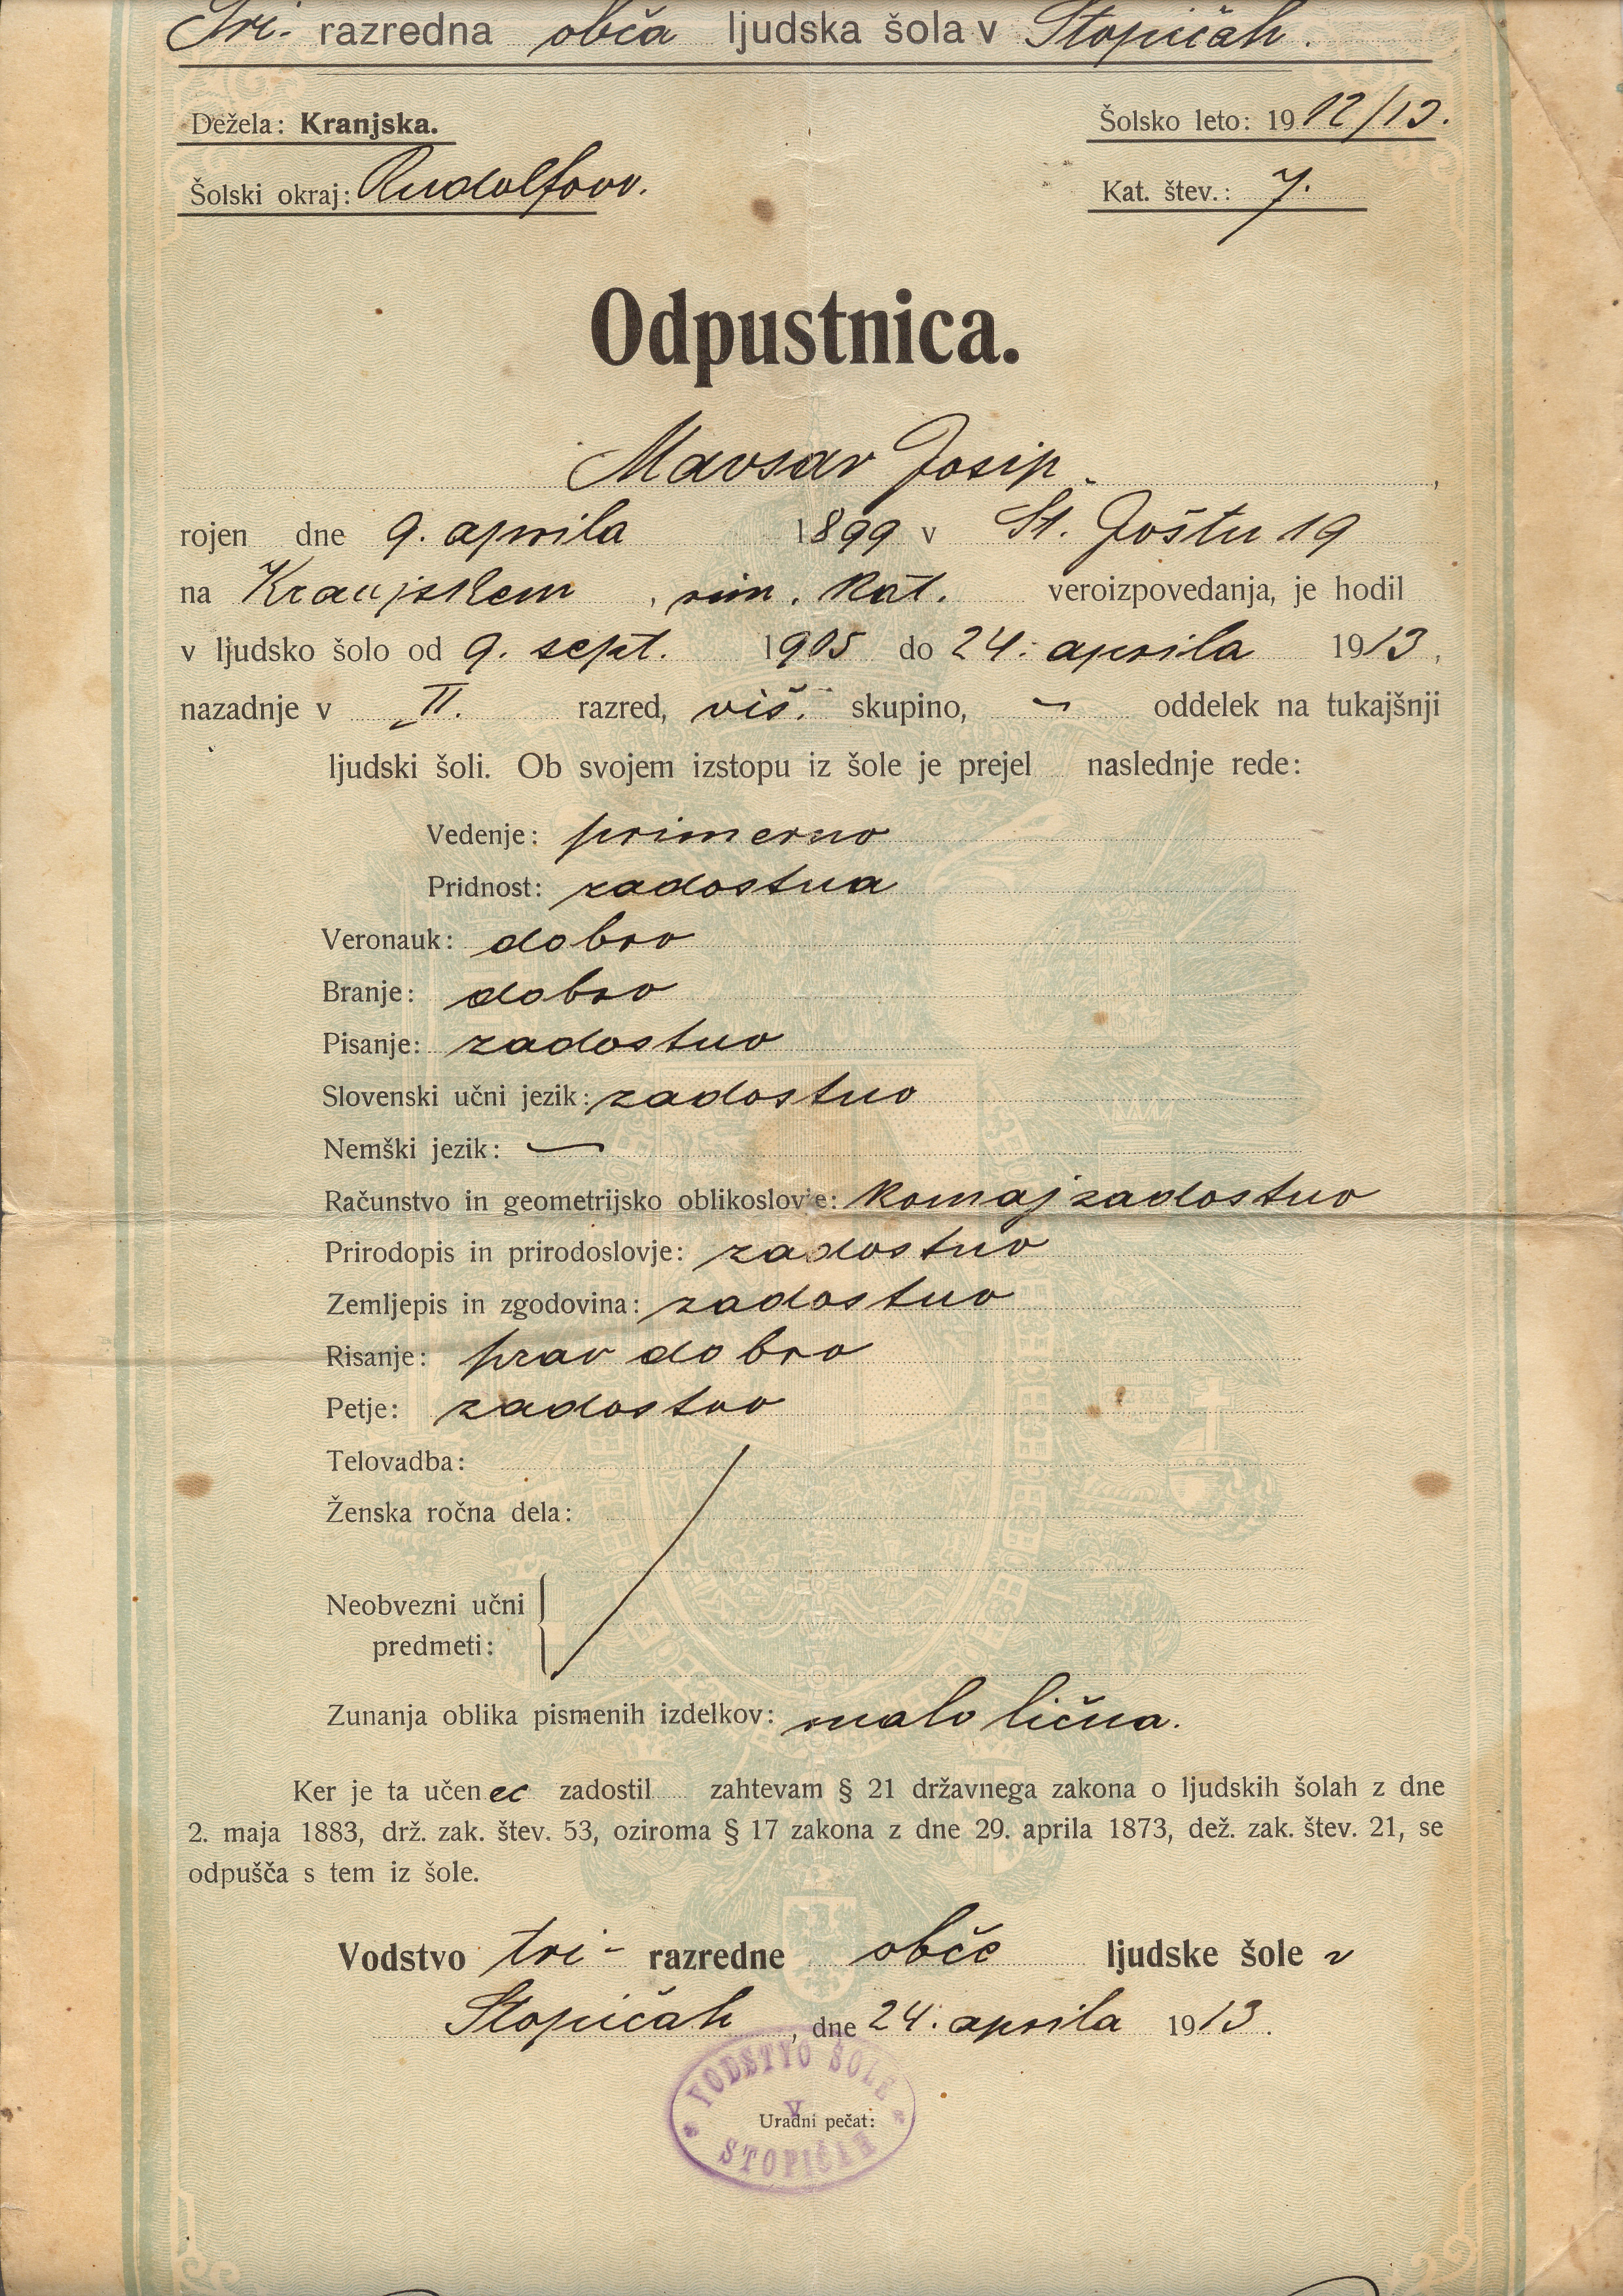 Tri- razredna obča ljudska šola v Stopičah.
Dežela: Kranjska.
Šolsko leto: 1912/13.
Šolski okraj: Rudolfovo.
Kat. štev.: 7.
Odpustnica.
Mavsar Josip.,
rojen dne 9. aprila 1899 v St. Joštu 19
na Kranjskem, rim. kat. veroizpovedanja, je hodil
v ljudsko šolo od 9. sept. 1905 do 24. aprila 1913,
nazadnje v II. razred, viš. skupino, – oddelek na tukajšnji
ljudski šoli. Ob svojem izstopu iz šole je prejel naslednje rede:
Vedenje: primerno
Pridnost: zadostna
Veronauk: dobro
Branje: dobro
Pisanje: zadostno
Slovenski učni jezik: zadostno
Nemški jezik: –
Računstvo in geometrijsko oblikoslovje: komaj zadostno
Prirodopis in prirodoslovje: zadostno
Zemljepis in zgodovina: zadostno
Risanje: prav dobro
Petje: zadostno
Telovadba:
Ženska ročna dela:
Neobvezni učni
predmeti:
Zunanja oblika pismenih izdelkov: malo lična.
Ker je ta učenec zadostil zahtevam § 21 državnega zakona o ljudskih šolah z dne
2. maja 1883, drž. zak. štev. 53, oziroma § 17 zakona z dne 29. aprila 1873, dež. zak. štev. 21, se
odpušča s tem iz šole.
Vodstvo tri- razredne obče ljudske šole v
Stopičah, dne 24. aprila 1913.
VODSTVO ŠOLE
V
Uradni pečat:
STOPIČAH